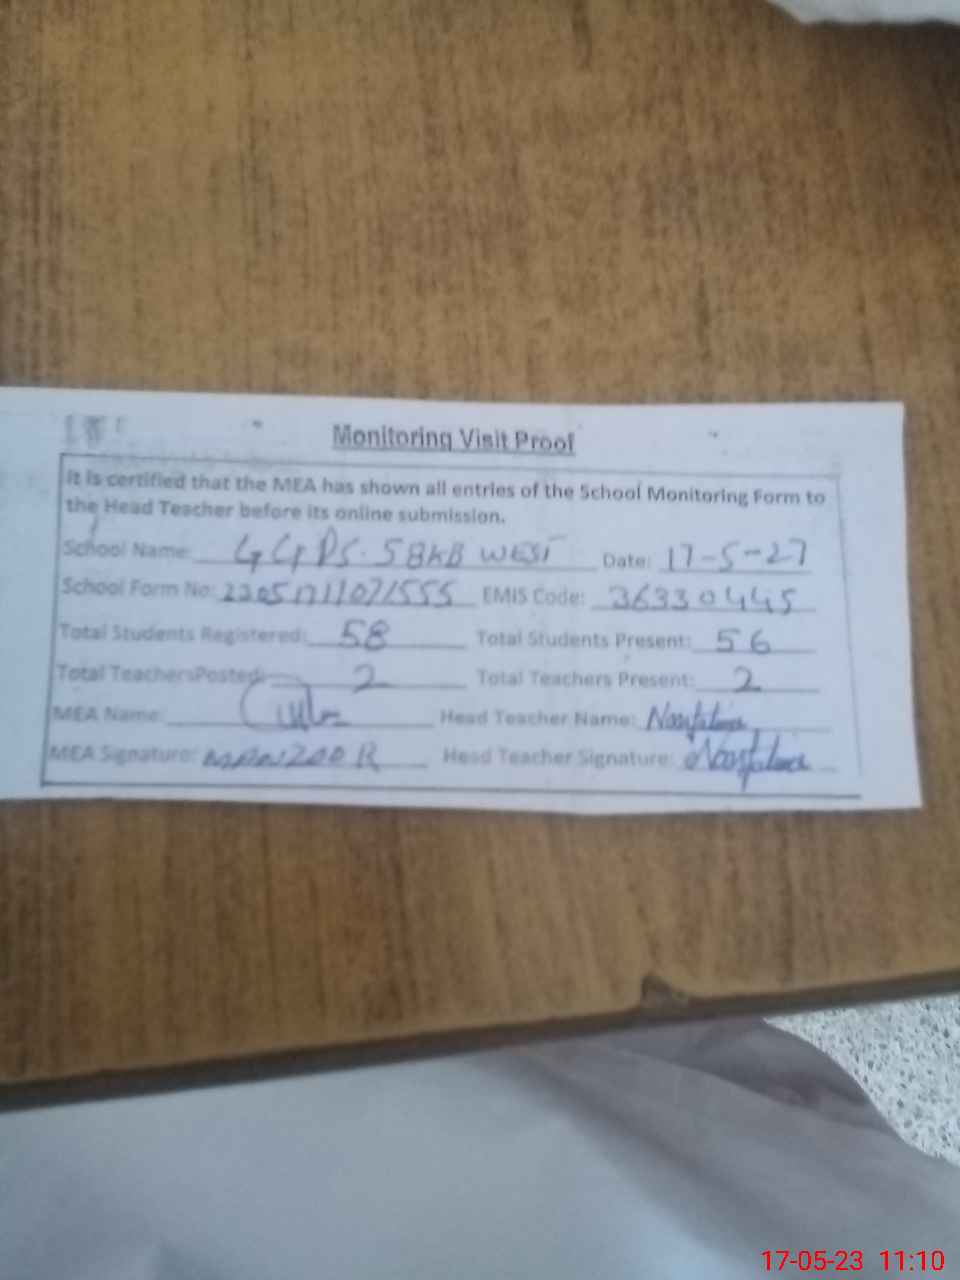 Monitoring Visit Proof
It is certified that the MEA has shown all entries of the School Monitoring Form to
the Head Teacher before its online submission.
School Name: GGPS. 58KB WEST Date: 17-5-27
School Form No: 22051711071555 EMIS Code: 36330445
Total Students Registered: 58 Total Students Present: 56
Total TeachersPosted: 2 Total Teachers Present: 2
MEA Name: Head Teacher Name:
MEA Signature: MANZOOR Head Teacher Signature:
17-05-23 11:10